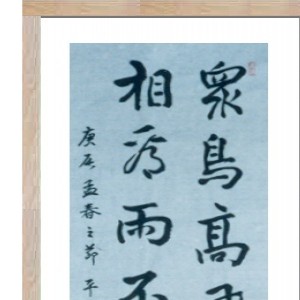 衆鳥高飛
相看兩不
庚辰孟春之節平